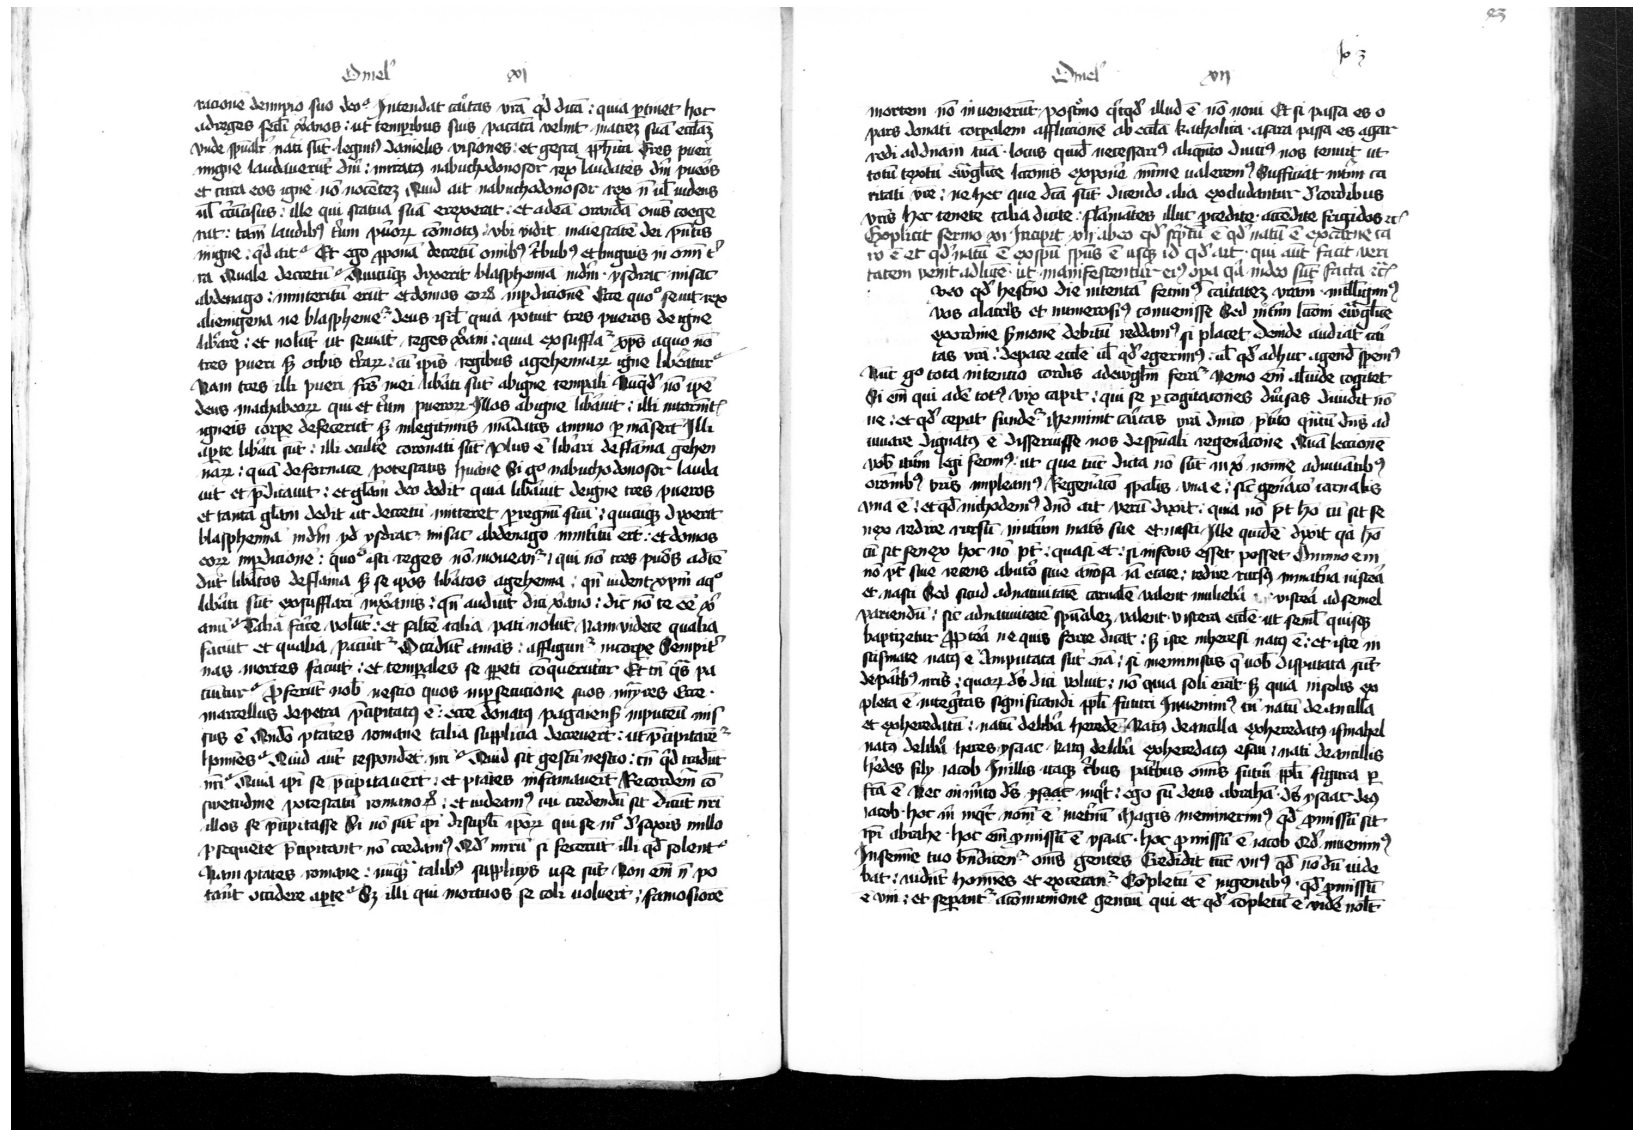 Omel' xi
racione de impio suo deo. Intendat caritas vrā qd dicā : quia ptinet hoc
ad reges scli xpianos : ut tempibus suis pacatā velint matrez suā ecclaz
vnde spualr nati sūt. legim9 danielis visiones : et gesta pphica Tres pueri
in igne laudaverūt dm : miratus nabuchodonosor rex laudātes dm pueros
et circa eos ignē nō nocētez Quid ait nabuchodonosor rex n ul iudeus
ul circūcisus : ille qui statuā suā erexerat : et ad eā orandā oms coege
rat : tam laudibz trium puerorz comotus : ubi vidit maiestatē dei pntis
in igne : qd ait. Et ego pponā decretū omibz tribubz et linguis in omi tr
ra Quale decretū. Quicumqz dixerit blasphemia in dm ydrac misac
abdenago : in interitū erūt et domos eorz in pdicione Ecce quo seuit rex
alienigena ne blasphemetr deus isrl quia potuit tres pueros de igne
librare : et nolūt ut seuiāt reges xpiani : quia exsufflatr xps a quo nō
tres pueri sz orbis trarz : cū ipis regibus a gehennarz igne liberatur
Nam tres illi pueri frēs mei librati sūt ab igne tempali Nuqd nō ipe
deus machabeorz qui et trium puerorz Illos ab igne librauit : illi in tormēt
igneis corpe defecerūt sz in legitimis mādatis animo pmāserūt Illi
apte librati sūt : illi occulte coronati sūt Plus ē librari de flāma gehen
narz : quā de fornace potestatis humane Si go nabuchodonosor lauda
uit et pdicauit : et glam deo dedit quia librauit de igne tres pueros
et tantā glam dedit ut decretū mitteret p regnū suū : quicumqz dixerit
blasphemia in dm ydrac misac abdenago in interitū erit : et domos
eorz in pdicione : quo isti reges nō moueantr : qui nō tres pueros adtē
dūt libatos de flāma sz se ipos libatos a gehenna : qn uident xpm a quo
librati sūt exsufflari in xpianis : qn audiūt dici xpiano : dic nō te ee xpi
anū. Talia facere volūt : et saltē talia pati nolūt Nam videte qualia
faciūt et qualia paciuntr Occidūt animas : affligūtr in corpe Sempitr
nas mortes faciūt : et tempales se ppeti conquerūtur Et tn qs pa
ciūtur. Proferūt nob nescio quos in psecutione suos mrtyres Ecce
marcellus de petra pcipitatus ē : ecce donatus pagaiensis in puteū mis
sus ē Quādo ptates romane talia supplicia decreuerūt : ut pcipitarētr
homines. Quid aut respondet nri. Quid sit gestū nescio : tn qd tradūt
nri. Quia ipi se pcipitauerūt : et ptates infamauerūt Recordem co
swetudinē potestatū romanorz : et uideam9 cui credendū sit Dicūt nri
illos se pcipitasse Si nō sūt ipi discipli iporz qui se mo de saxis nullo
psequēte pcipitant nō credam9 Qd mirū si fecerūt illi qd solent.
Nam ptates romane : nuqz talibz supplicijs use sūt Non em n po
tant occidere apte. Sz illi qui mortuos se coli uoluerūt : famosiorē
93
Io 3
Omel' xii
mortem nō inuenerūt. postmo quicqd illud ē nō noui Et si passa es o
pars donati corpalem afflictionē ab eccla katholica. a sara passa es agar
redi ad dnam tuā. locus quid necessari9 aliqnto diuti9 nos tenuit ut
totū textū ewglice lconis exponē mīme ualerem9 Sufficiat intrim ca
ritati vre : ne hec que dca sūt dicendo alia excludantur de cordibus
vris hoc tenete talia dicite : flāmātes illuc procedite. accendite frigidos etc
Explicit sermo xi Incipit xii ab eo qd scptū ē qd natū ē ex carne ca
ro ē et qd natū ē ex spu spūs ē usqz id qd ait qui aut facit veri
tatem venit ad lucē ut manifestentur ei9 opa qa in deo sūt facta etc
eo qd hestrno die intentā fecim9 caritatez vram. intelligim9
vos alacri9 et numerosi9 convenisse Sed intrim lconi ewglice
ex ordine smonē debitū reddam9 si placet. deinde audiat cari
tas vra : de pace eccle ul qd egerim9 : ul qd adhuc agend spem9
Nūc go tota intencio cordis ad ewglm feratr Nemo em aliunde cogitet
Si em qui adē tot9 vix capit : qui se p cogitaciones diusas diuidit nō
ne : et qd cepat fundet Meminit caritas vra dnico ptito qntū dns ad
iuuare dignatus ē disseruisse nos de spuali regenacone Quā leccionē
vob itrum legi fecim9 : ut que tūc dicta nō sūt in xpi nomine adiuuātibz
orōnibz vris impleam9 Regeneraco spalis vna ē : sic genaco carnalis
vna ē : et qd nichodem9 dno ait verū dixit : quia nō pt ho cū sit se
nex redire rursū in utrum matris sue et nasci. Ille quidē dixit qa ho
cū sit senex hoc nō pt : quasi et : si infans esset posset Omnino em
nō pt siue recens ab utero siue annosa iā etate : redire rursus in matrna uiscera
et nasci Sed sicud ad natiuitatē carnalē valent muliebria viscera ad semel
pariendū : sic ad natiuitatē spualez valent viscera eccle ut semel quisqz
baptizetur ppterea ne quis forte dicat : sz iste in heresi nat9 ē : et iste in
scismate nat9 ē Amputata sūt oia : si meministis q vob disputata sūt
de patribz nris : quorz ds dici voluit : nō quia soli erāt sz quia in solis ex
pleta ē integritas significandi ppli futuri Inuenim9 em natū de ancilla
et exheredatū : natū de libera heredē Natus de ancilla exheredatus ismahel
natus de libera heres ysaac. Natus de libera exheredatus esau : nati de ancillis
hredes filij iacob In illis itaqz tribus patribus omis futuri ppli figura p
fcta ē Nec inmrito ds ysaac inqt : ego sū deus abraham. ds ysaac deus
iacob. hoc m inqt nomen ē in etrnū Magis meminerim9 qd promissū sit
ipi abrahe. hoc em promissū ē ysaac. hoc promissū ē iacob Qd inuenim9
In semine tuo bndicentr oms gentes Credidit tūc un9 qd nōdū uide
bat : uidēt homines et excecantr Completū ē in gentibus qd promissū
ē vni : et separantr a comunione gentiū qui et qd completū ē videre nolūt